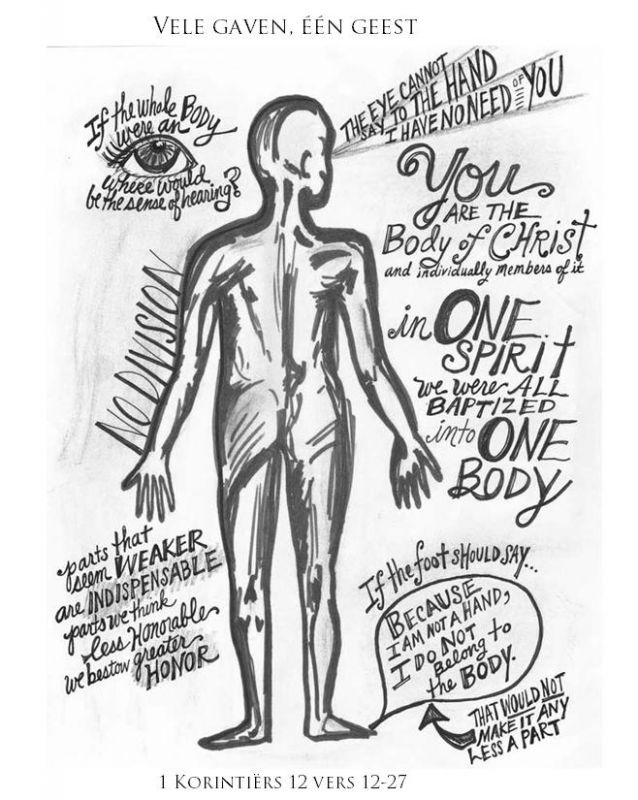 VELE GAVEN, ÉÉN GEEST
If the whole BODY
were an
where would
be the sense of hearing?
THE EYE CANNOT
SAY TO THE HAND
I HAVE NO NEED OF YOU
You
ARE THE
Body of CHRIST
and individually members of it
NO DIVISION
in ONE
SPIRIT
we were ALL
BAPTIZED
into ONE
BODY
parts that
seem WEAKER
are INDISPENSABLE
parts we think
less Honorable
we bestow greater
HONOR
If the foot SHOULD SAY...
BECAUSE
I AM NOT A HAND,
I DO NOT
Belong to
the BODY.
THAT WOULD NOT
MAKE IT ANY
LESS A PART
1 KORINTIËRS 12 VERS 12-27